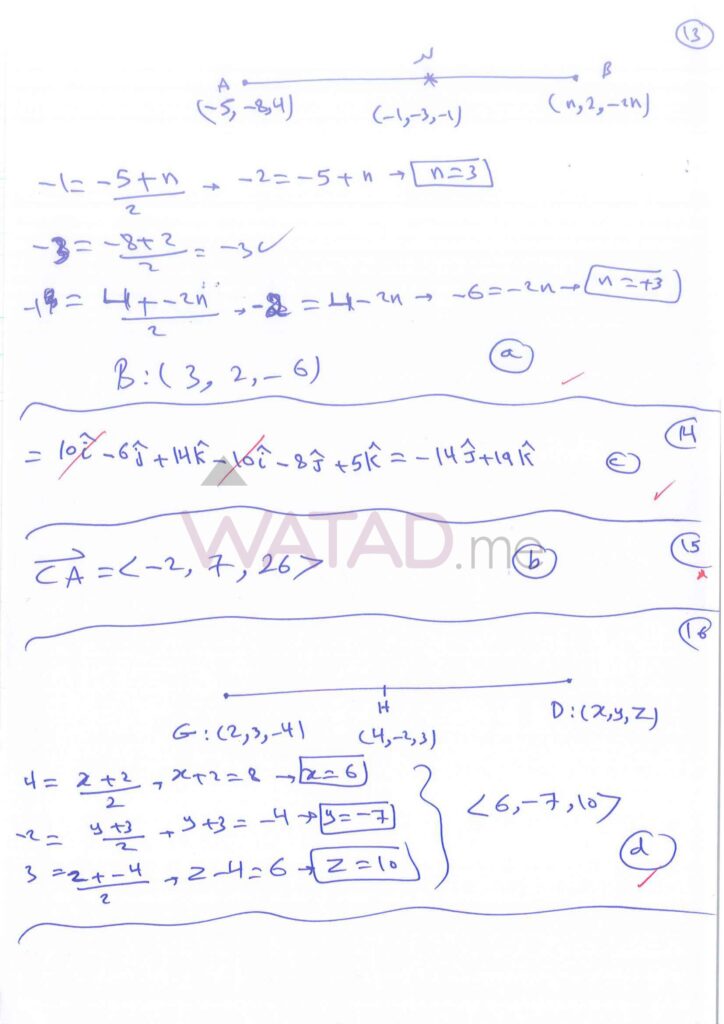 13
A N B
(-5, -8, 4) (-1, -3, -1) (n, 2, -2n)
-1 = (-5+n)/2 → -2 = -5+n → n=3
-3 = (-8+2)/2 = -3 ✓
-1 = (4+-2n)/2 → -2 = 4-2n → -6 = -2n → n=+3
B : (3, 2, -6) a
14
= 10î - 6ĵ + 14k̂ - 10î - 8ĵ + 5k̂ = -14ĵ + 19k̂ c
WATAD.me
15
CA = <-2, 7, 26> b
16
H
G : (2, 3, -4) (4, -2, 3) D : (x, y, z)
4 = (x+2)/2 → x+2 = 8 → x=6
-2 = (y+3)/2 → y+3 = -4 → y=-7 <6, -7, 10>
3 = (z+-4)/2 → z-4 = 6 → z=10 d